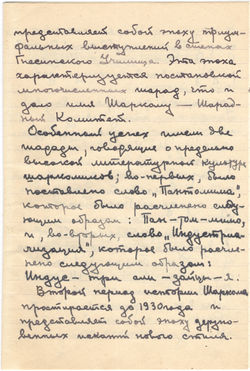 представляет собой эпоху триум-
фальных выступлений в стенах
Гнесинского Училища. Эта эпоха
характеризуется постановкой
многочисленных шарад, что и
дало имя Шаркому — Шарад-
ный Комитет.
Особенный успех имели две
шарады, говорящие о предельно
высокой литературной культуре
шаркомцев; во-первых, было
поставлено слово „Пантомима",
которое было расчленено следу-
ющим образом: Пан-том-мима,
и, во-вторых, слово „Индустриа-
лизация", которое было расчле-
нено следующим образом:
Индус - три али - зайцы - я.
Второй период истории Шаркома
простирается до 1930 года и
представляет собой эпоху
венных исканий нового стиля.